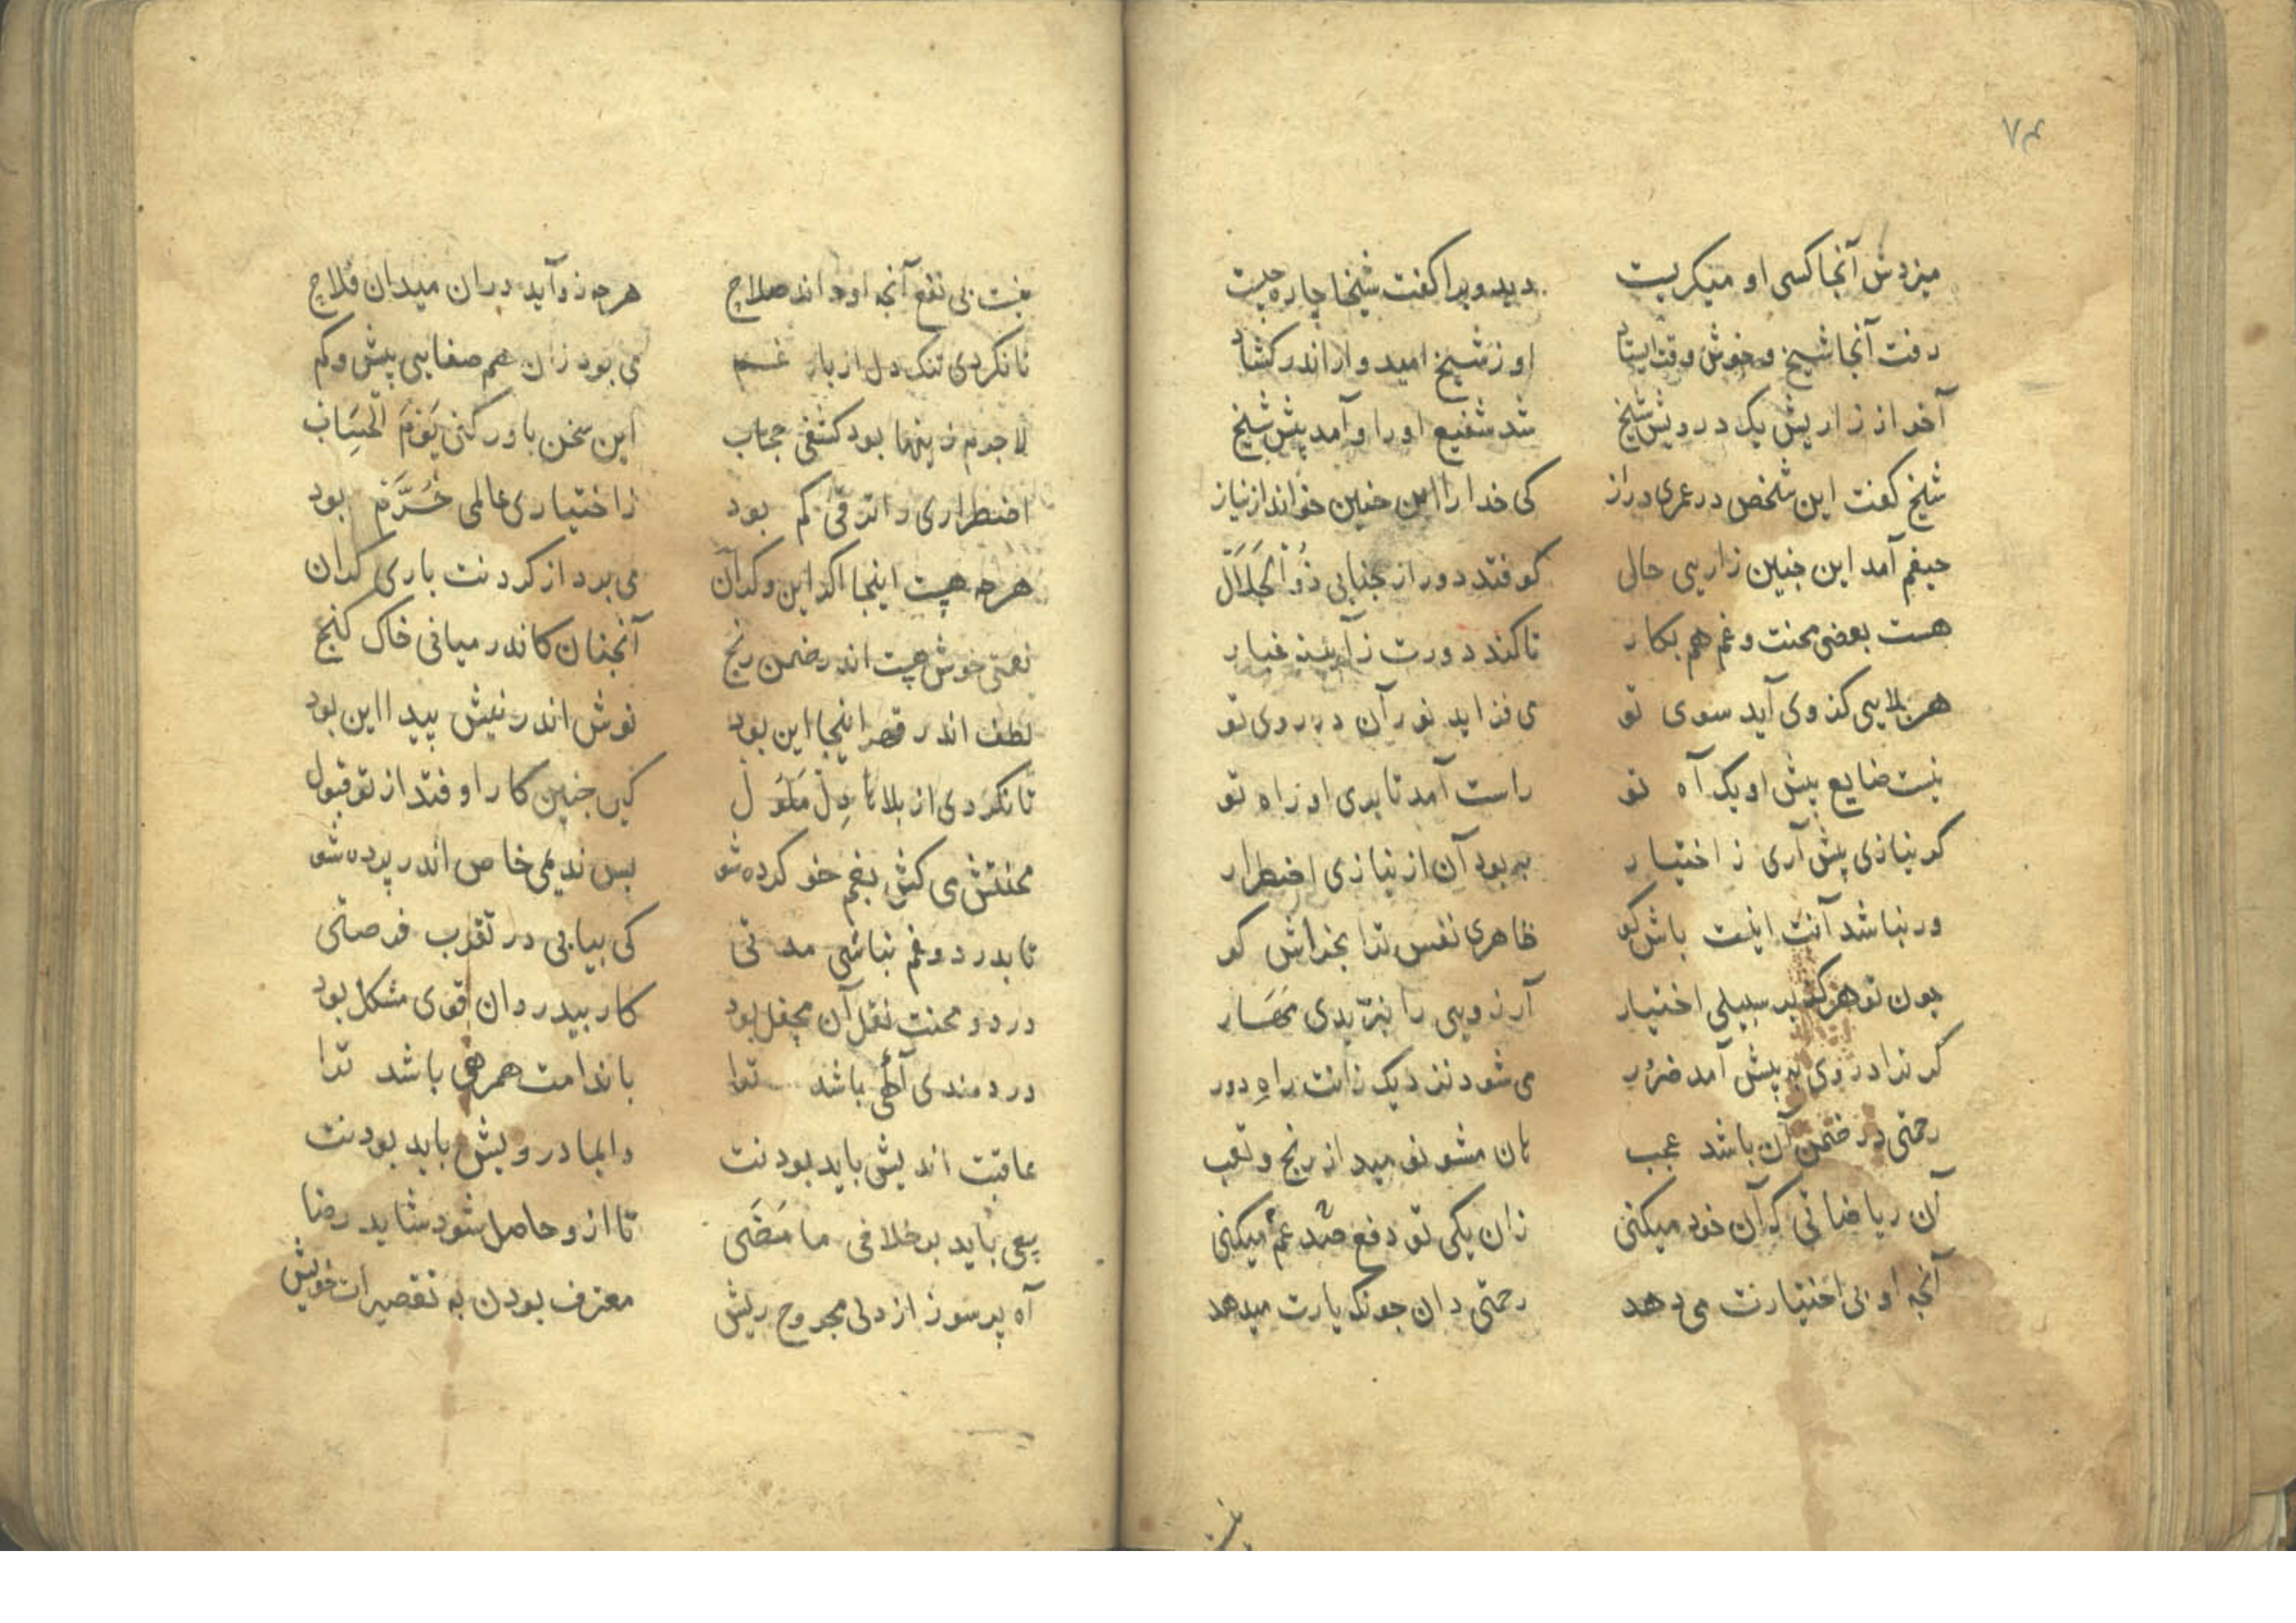 ٧٤
میزدش آنجا کسی او میکریست دید ویرا کفت شیخا چاره چیست
رفت آنجا شیخ و خوش وقت ایستاد او ز شیخ امیدوار اندر کشاد
آخر از زاریش یک درویش شیخ شد شفیع او را و آمد پیش شیخ
شیخ کفت این شخص در عمری دراز کی خدا را این جنین خواند از نیاز
حیفم آمد این جنین زاریی حالی کو فتد دور از جنابی ذُو الْجَلَال
هست بعضی محنت و غم هم بکار تا کند دورت ز آیینه غبار
هر بلایی کز وی آید سوی تو می فزاید نور آن در روی تو
نیست ضایع پیش او یک آه تو راست آمد تا بری او راه تو
کر نیازی پیش آری ز اختیار به بود آن از نیازی اضطرار
ور نباشد آنت اینت باش کو ظاهری نفس ترا بخراش کو
چون تو هرکز بر سبیلی اختیار آرزویی را نبرّیدی مَهَار
کر ترا دردی به پیش آمد ضرُور می شود نزدیک زانت راهِ دور
رحمتی در ضمن آن باشد عجب هان مشو نومید از رنج و تعب
آن ریاضاتی که آن خود میکنی زان یکی تو دفع صد غم میکنی
آنجه او بی اختیارت می دهد رحمتی دان جونک یارت میدهد
نیست
نیست بی نفع آنجه او داند صلاح هرجه زو آید در ان میدان فلاح
تا نکردی تنک دل از بار غم می بود زان غم صفایی بیش و کم
لاجرم زینها بود کشفی حجاب این سخن باور کنی یَوْمَ الْحِسَاب
اضطراری را ترقّی کم بود ز اختیاری عالمی خُرَّم بود
هرجه هست اینجا اکر این و کر آن می برد از کردنت باری کران
نعمتی خوش هست اندر ضمن رنج آنجنان کاندر میانی خاک کنج
لطف اندر قهر اینجا این بود نوش اندر نیش پیدا این بود
تا نکردی از بلا تا دِلْ مَلُول کی جنین کار اوفتد از تو قبول
محنتش می کش بغم خو کرده شو بس ندیمی خاص اندر پرده شو
تا بدرد و غم نباشی مدتی کی بیابی در تقرب فرصتی
درد و محنت نقل آن محفل بود کار بیدردان قوی مشکل بود
دردمندی آهی باشد ترا با ندامت همرهی باشد ترا
عاقبت اندیش باید بودنت دایما درویش باید بودنت
سعی باید بر خلافی ما مَضَی تا ازو حاصل شود شاید رضا
آه پر سوز از دلی مجروح ریش معترف بودن به تقصیرات خویش